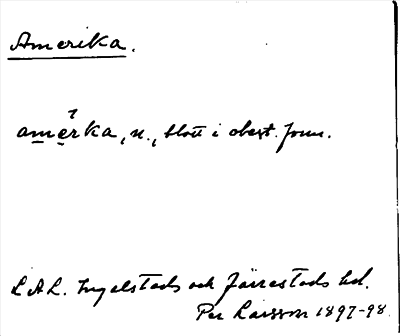 Amerika.
amérka, n., blott i obest. form.
L.A.L. Ingelstads och Järrestads hd.
Per Larsson 1897-98.